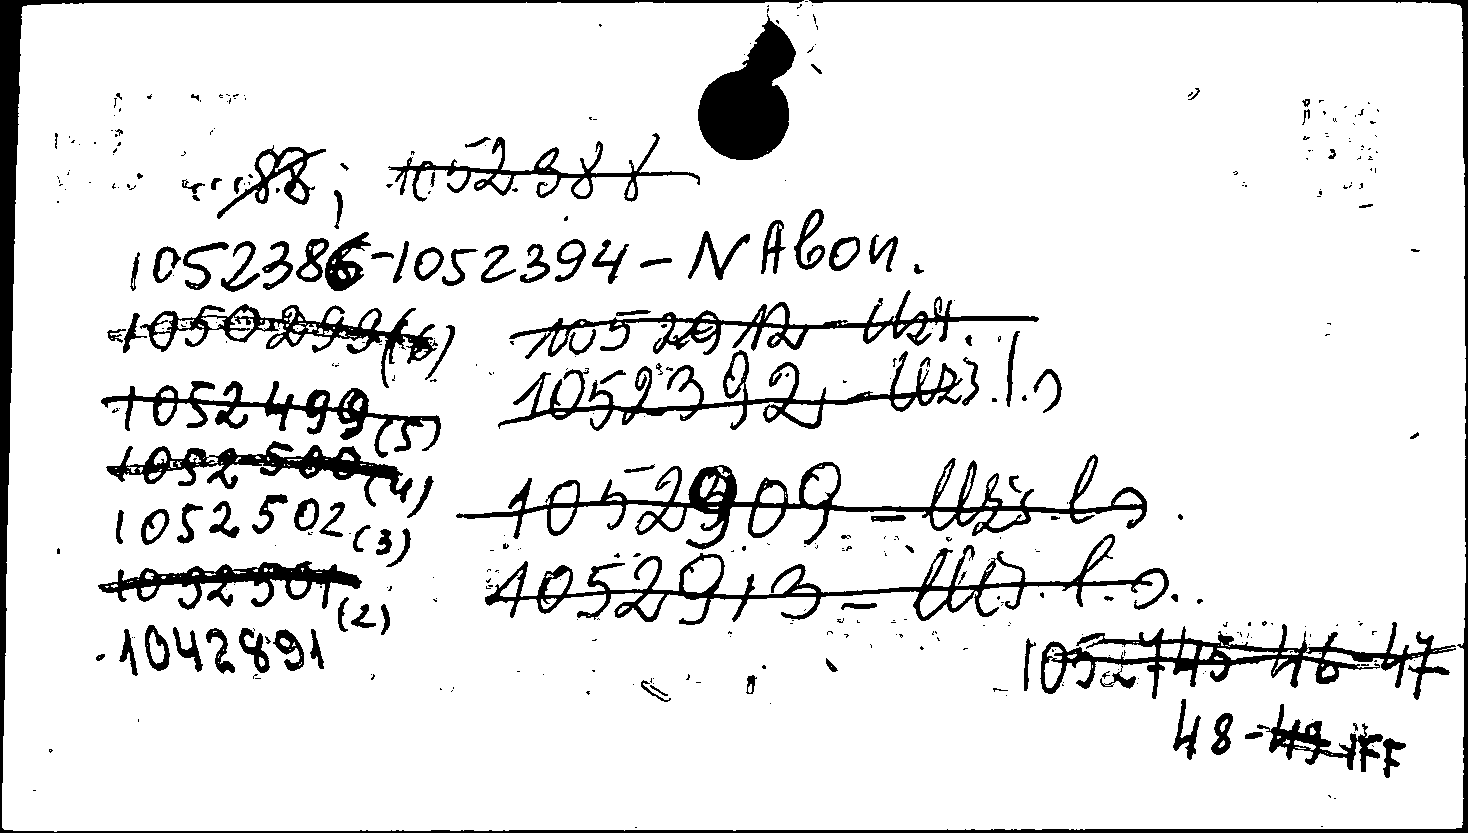 88; 1052388
1052386-1052394 - NAbon.
1050299 (6)
1052912 - Uzż.
1052499 (5)
1052392, - Uzż. l. o
1052500 (4)
1052502 (3)
1052909 - Uzż. l. o.
1052501 (2)
1052913 - Uż. l. o..
1042891
1052745-46-47
48-49 IFF